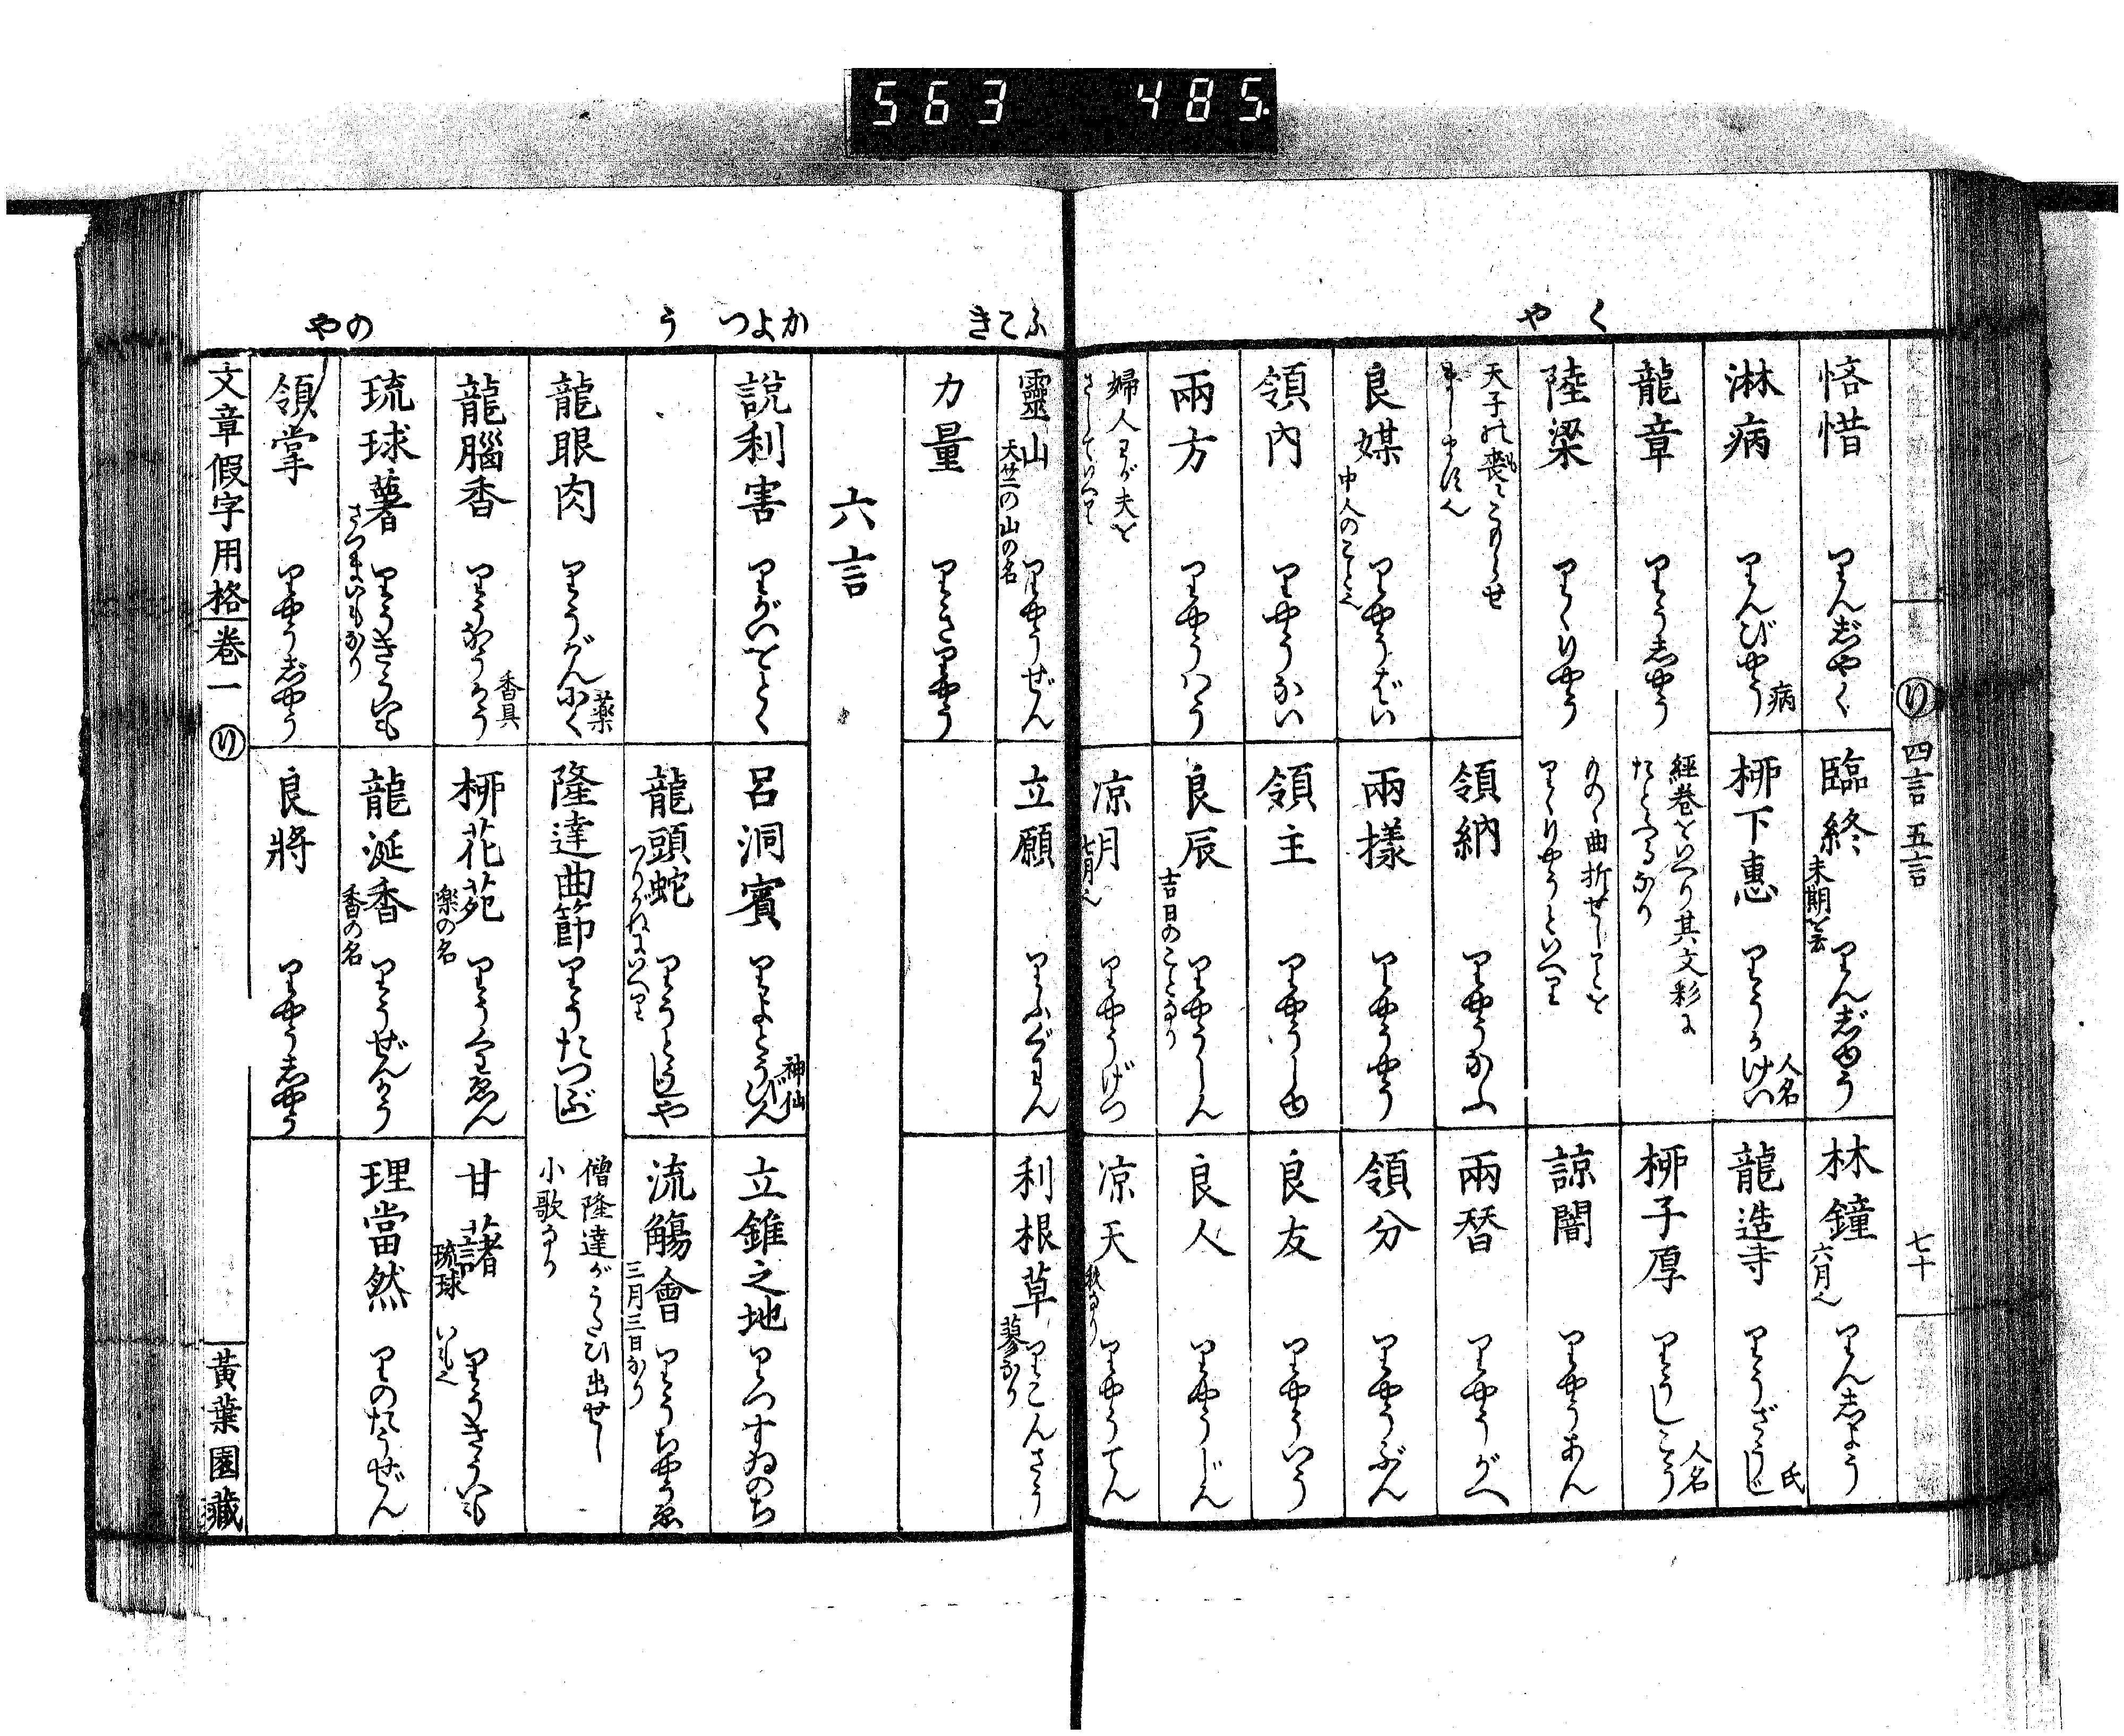 563 485
く や
り 四言 五言 七十
悋惜 りんじやく
臨終 末期を云 りんじゆう
林鐘 六月也 りんしよう
淋病 りんびやう 病
柳下惠 りうかけい 人名
龍造寺 りうざうじ 氏
龍章 りうしやう
經卷をいへり其文彩に
たとふるなり
柳子厚 りうしこう 人名
陸梁 りくりやう
ものゝ曲折せしことを
りくりやうといへり
諒闇 りやうあん
天子の喪
領納 りやうなふ
兩替 りやうがへ
良媒 中人のこと也 りやうばい
兩樣 りやうやう
領分 りやうぶん
領內 りやうない
領主 りやうしゆ
良友 りやういう
兩方 りやうはう
良辰 吉日のことなり りやうしん
良人 りやうじん
婦人わが夫を
さしていへり
凉月 七月也 りやうげつ
凉天 秋なり りやうてん
ふこき
かよつ
う
のや
靈山 天竺の山の名 りやうぜん
立願 りふぐわん
利根草 蓼なり りこんさう
力量 りきりやう
六言
說利害 りがいをとく
呂洞賓 りよとうびん 神仙
立錐之地 りつすゐのち
龍頭蛇 つりがねにいへり りうとうじや
流觴會 三月三日なり りうしやうゑ
龍眼肉 りうがんにく 薬
隆達曲節 りうたつぶし
僧隆達がうたひ出せし
小歌なり
龍腦香 りうなうかう 香具
柳花苑 楽の名 りうくわゑん
甘藷 琉球いも也 りうきういも
琉球薯 さつまいもなり りうきういも
龍涎香 香の名 りうぜんかう
理當然 りのたうぜん
領掌 りやうじやう
良將 りやうしやう
文章假字用格 卷一 り 黃葉園藏